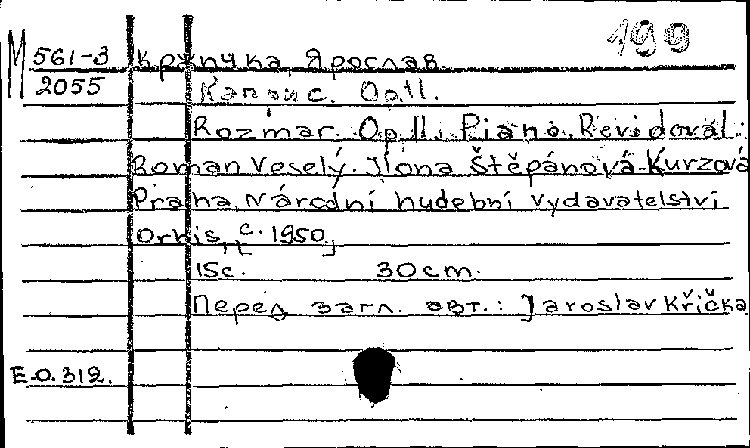 199
М 561-3 Кржичка, Ярослав.
2055 Каприс. Op.11.
Rozmar. Op.11. Piano. Revidoval:
Roman Veselý. Ilona Štěpánová-Kurzová
Praha, Národní hudební vydavatelství
Orbis, [c. 1950]
15c. 30cm.
Перед загл. авт.: Jaroslav Křička
E.O.312.